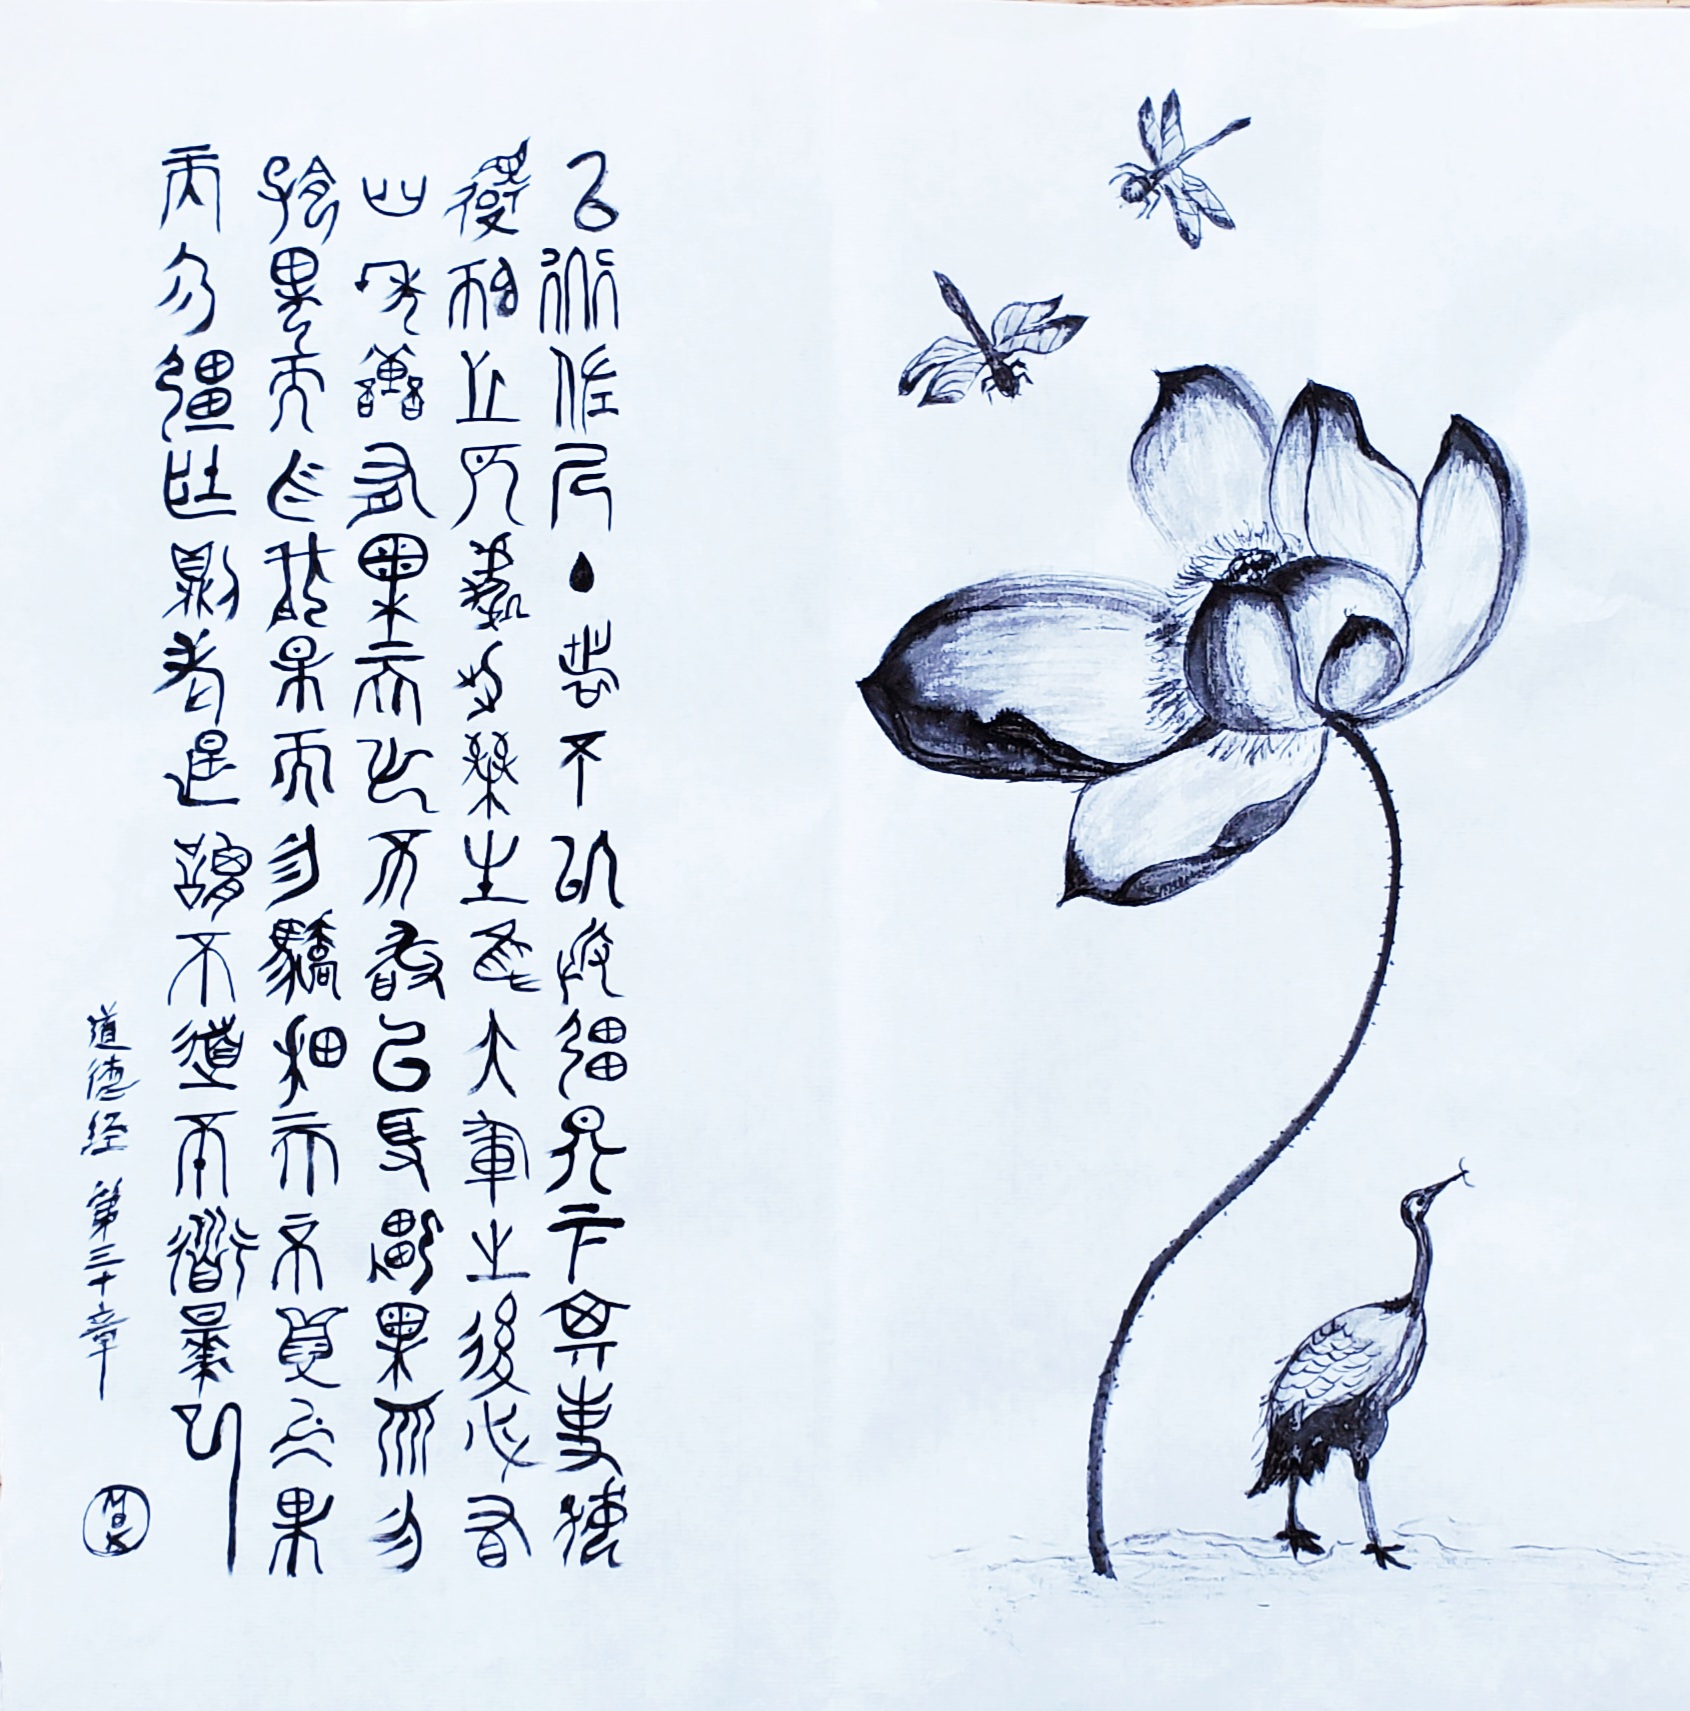 以道佐人主者不以兵彊天下其事好
還師之所處荊棘生焉大軍之後必有
凶年善有果而已不敢以取彊果而勿
矜果而勿伐果而勿驕果而不得已果
而勿彊壯則老是謂不道不道早已
道德经 第三十章